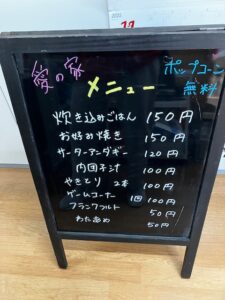 愛の家
メニュー
ポップコーン
無料
炊き込みごはん 150円
お好み焼き 150円
サーターアンダギー 120円
肉団子汁 100円
やきとり 2本 100円
ゲームコーナー 1回 100円
フランクフルト 50円
わた あめ 50円